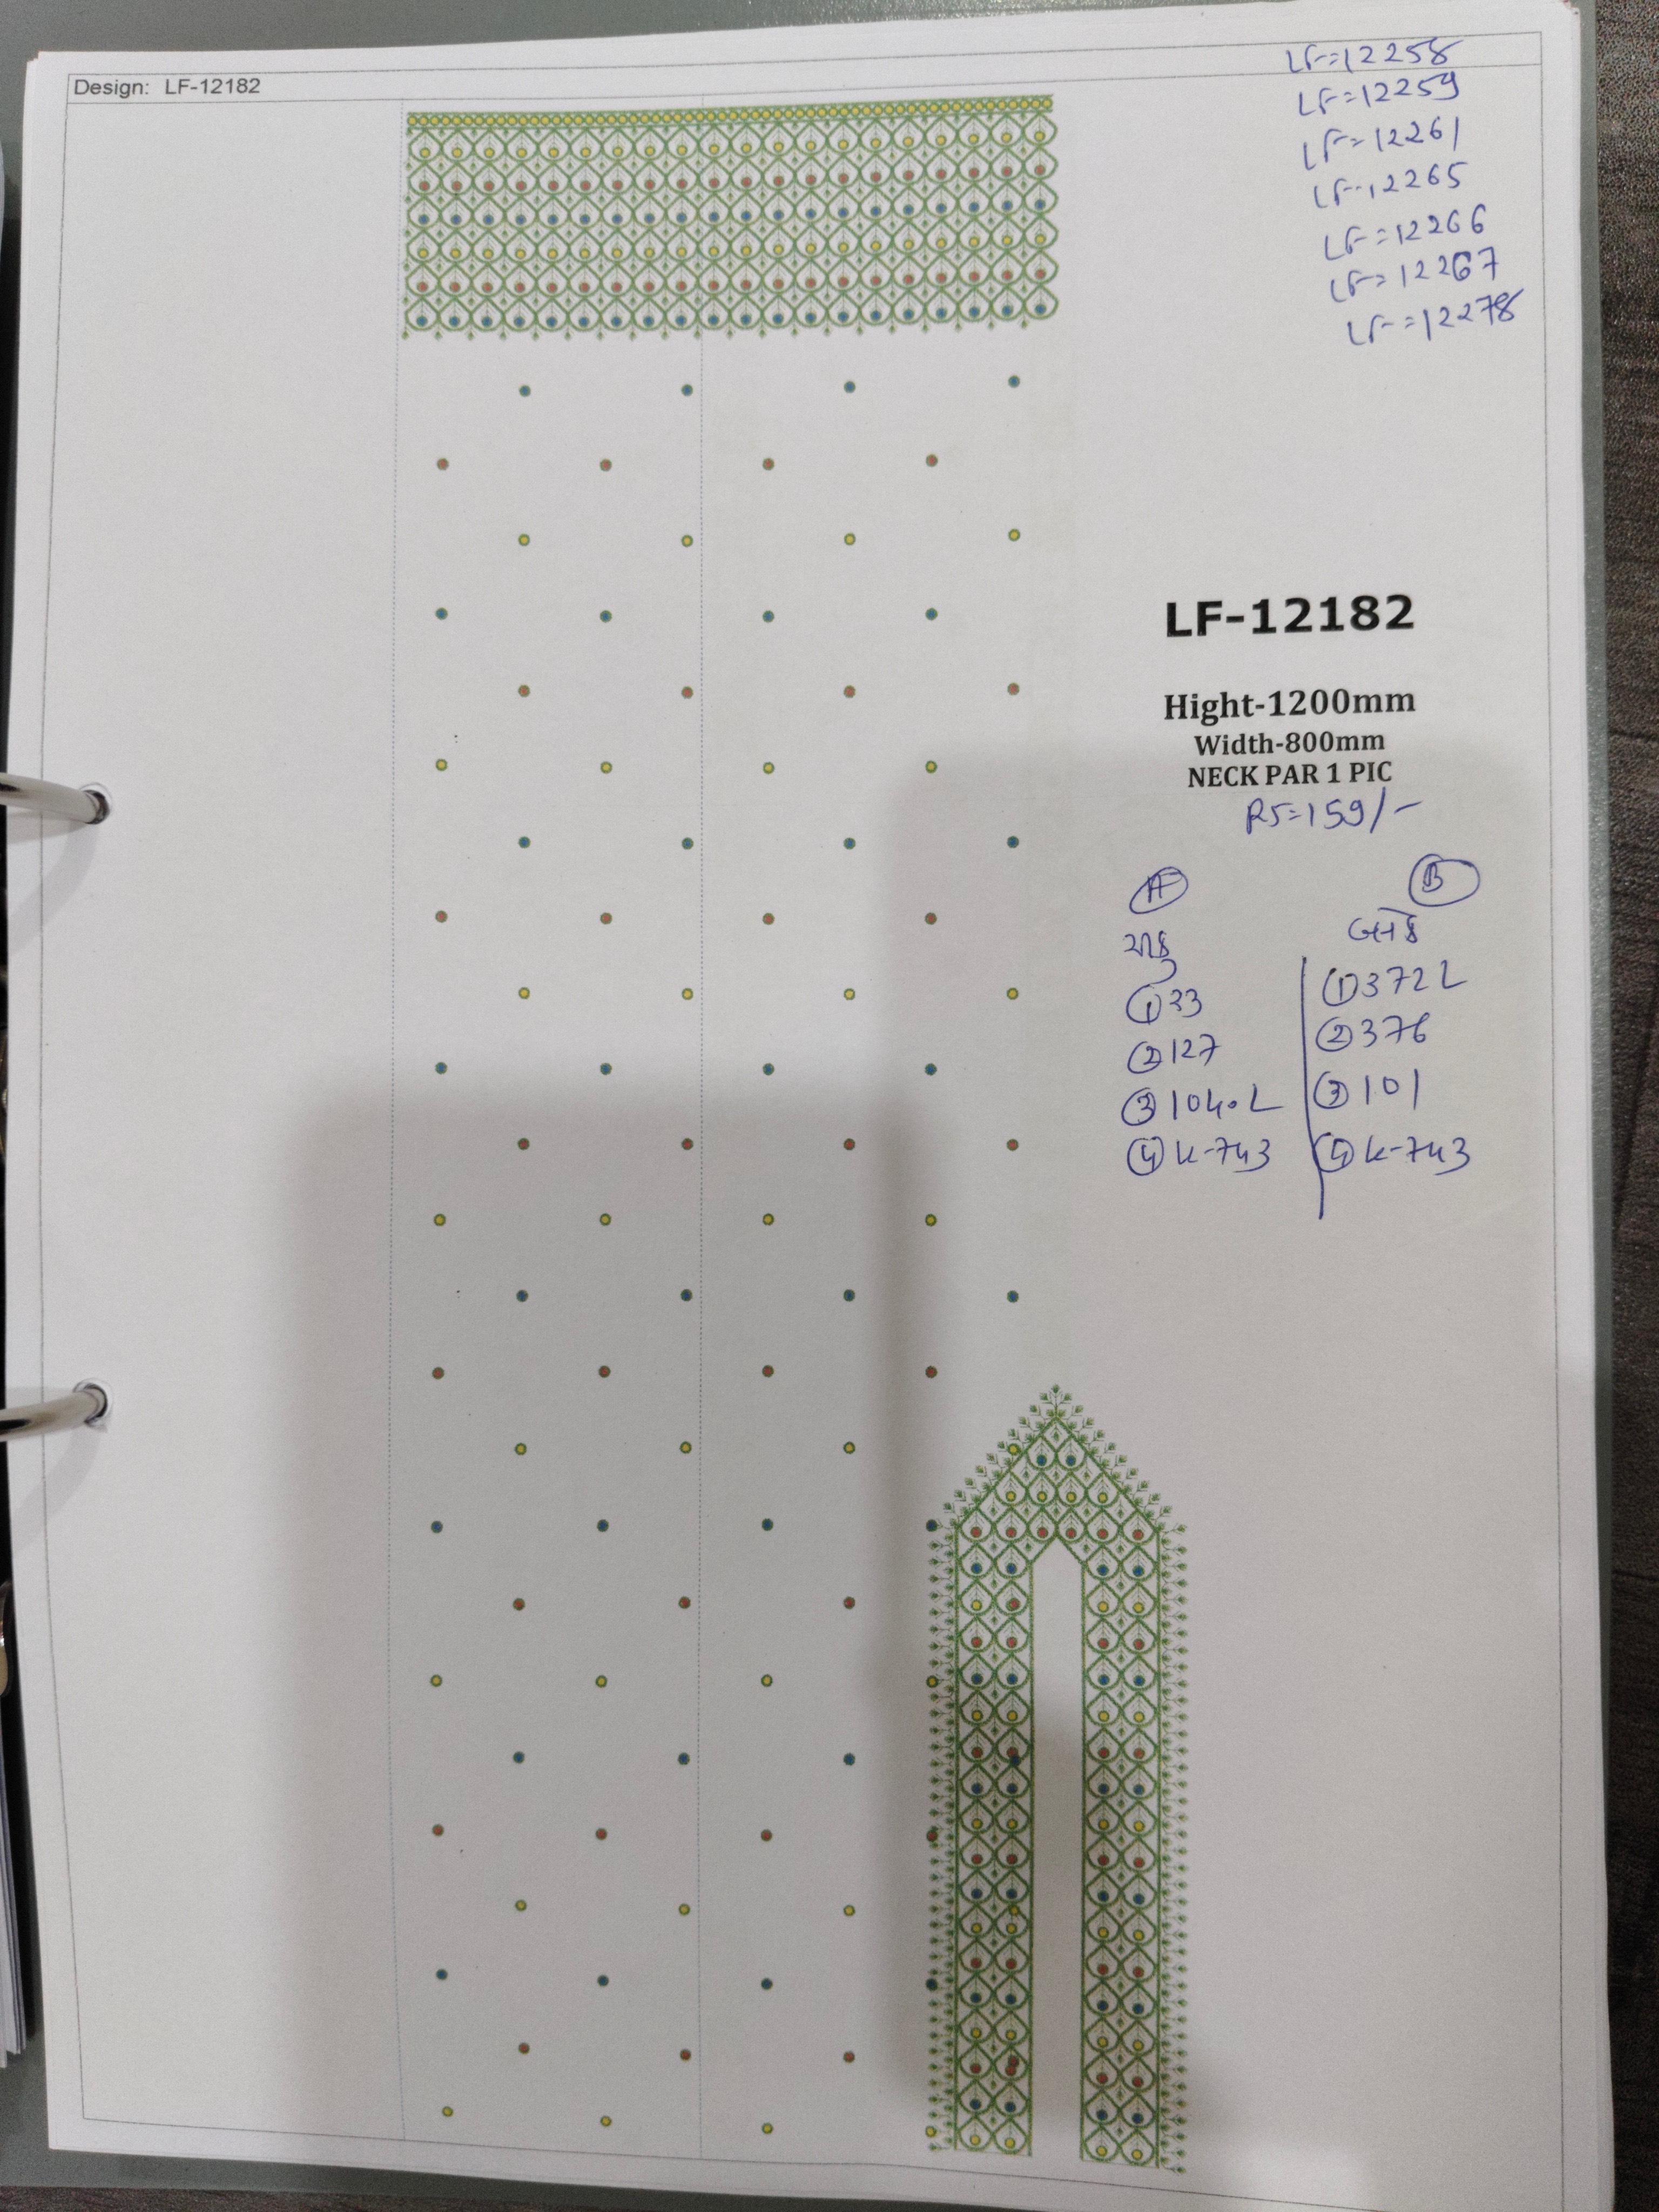 Design: LF-12182
LF=12258
LF=12259
LF=12261
LF=12265
LF=12266
LF=12267
LF=12278
LF-12182
Hight-1200mm
Width-800mm
NECK PAR 1 PIC
RS=159/-
A
B
① 33
② 127
③ 104.L
④ K-743
① 372L
② 376
③ 101
④ K-743